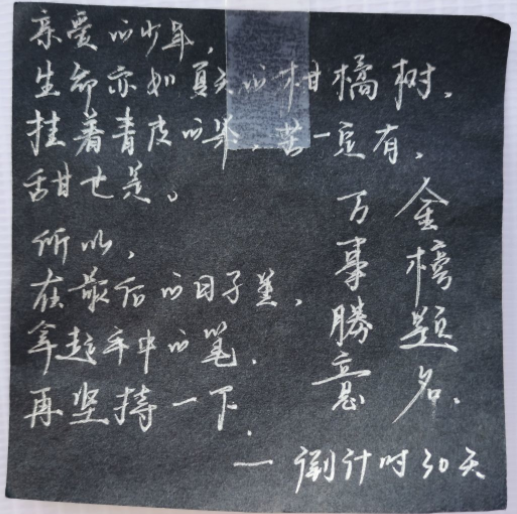 亲爱的少年，
生命亦如夏天的柑橘树，
挂着青皮的果，苦一定有，
甜也是。
所以，
在最后的日子里，
拿起手中的笔，
再坚持一下。
金榜题名、
万事勝意
— 倒计时30天